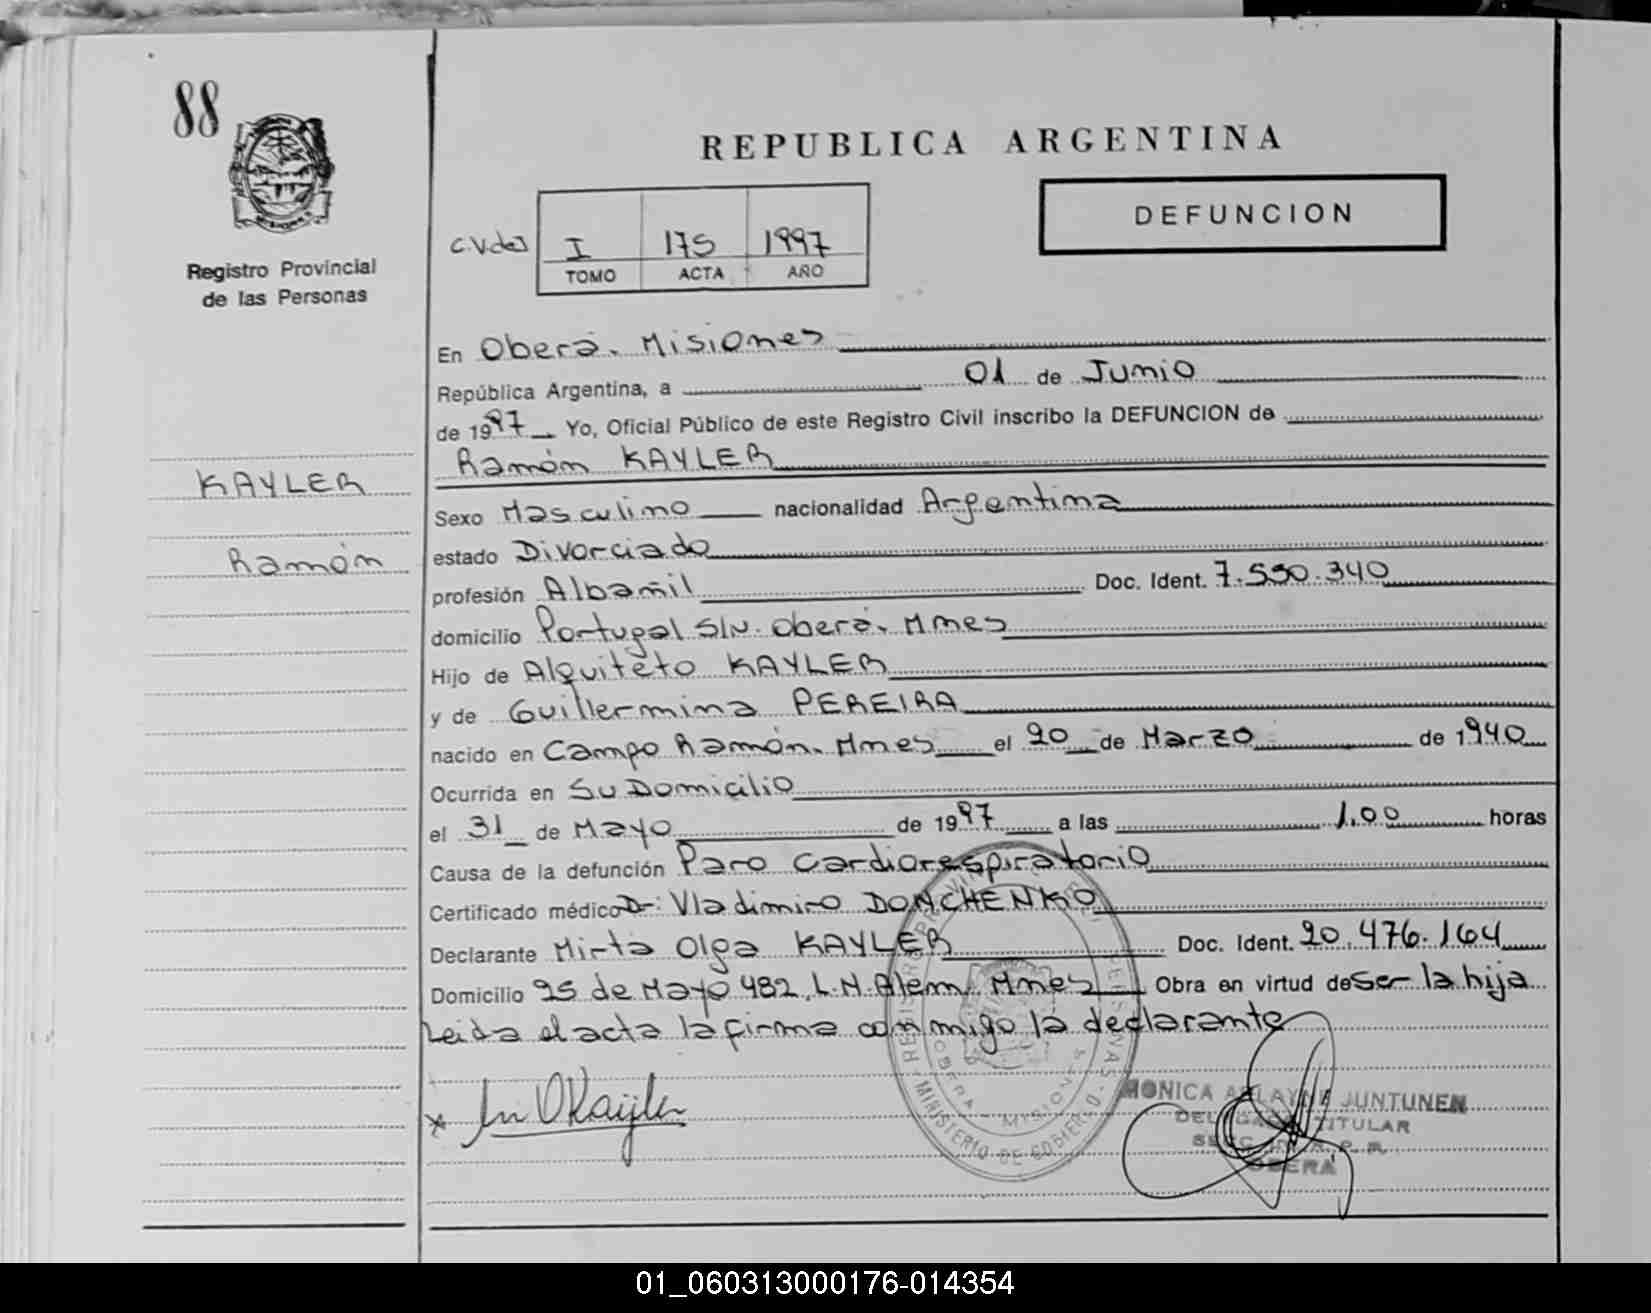 88
REPUBLICA ARGENTINA
DEFUNCION
C.V.de)
I 175 1997
TOMO ACTA AÑO
Registro Provincial
de las Personas
KAYLER
Ramón
En Oberá. Misiones
República Argentina, a 01 de Junio
de 1997 Yo, Oficial Público de este Registro Civil inscribo la DEFUNCION de
Ramón KAYLER
Sexo Masculino nacionalidad Argentina
estado Divorciado
profesión Albañil Doc. Ident. 7.550.340
domicilio Portugal S/N. Oberá. Mnes
Hijo de Alquiteto KAYLER
y de Guillermina PEREIRA
nacido en Campo Ramón. Mnes el 20 de Marzo de 1940
Ocurrida en Su Domicilio
el 31 de Mayo de 1997 a las 1.00 horas
Causa de la defunción Paro Cardiorespiratorio
Certificado médico Dr: Vladimiro DONCHENKO
Declarante Mirta Olga KAYLER Doc. Ident. 20.476.164
Domicilio 25 de Mayo 482, L.N.Alem, Mnes Obra en virtud de Ser la hija
Leida el acta la firma conmigo la declarante
REGISTRO PROVINCIAL DE LAS PERSONAS - MINISTERIO DE GOBIERNO -
OBERA - MISIONES
MONICA JUNTUNEN
DELEGADA TITULAR
OBERA
01_060313000176-014354